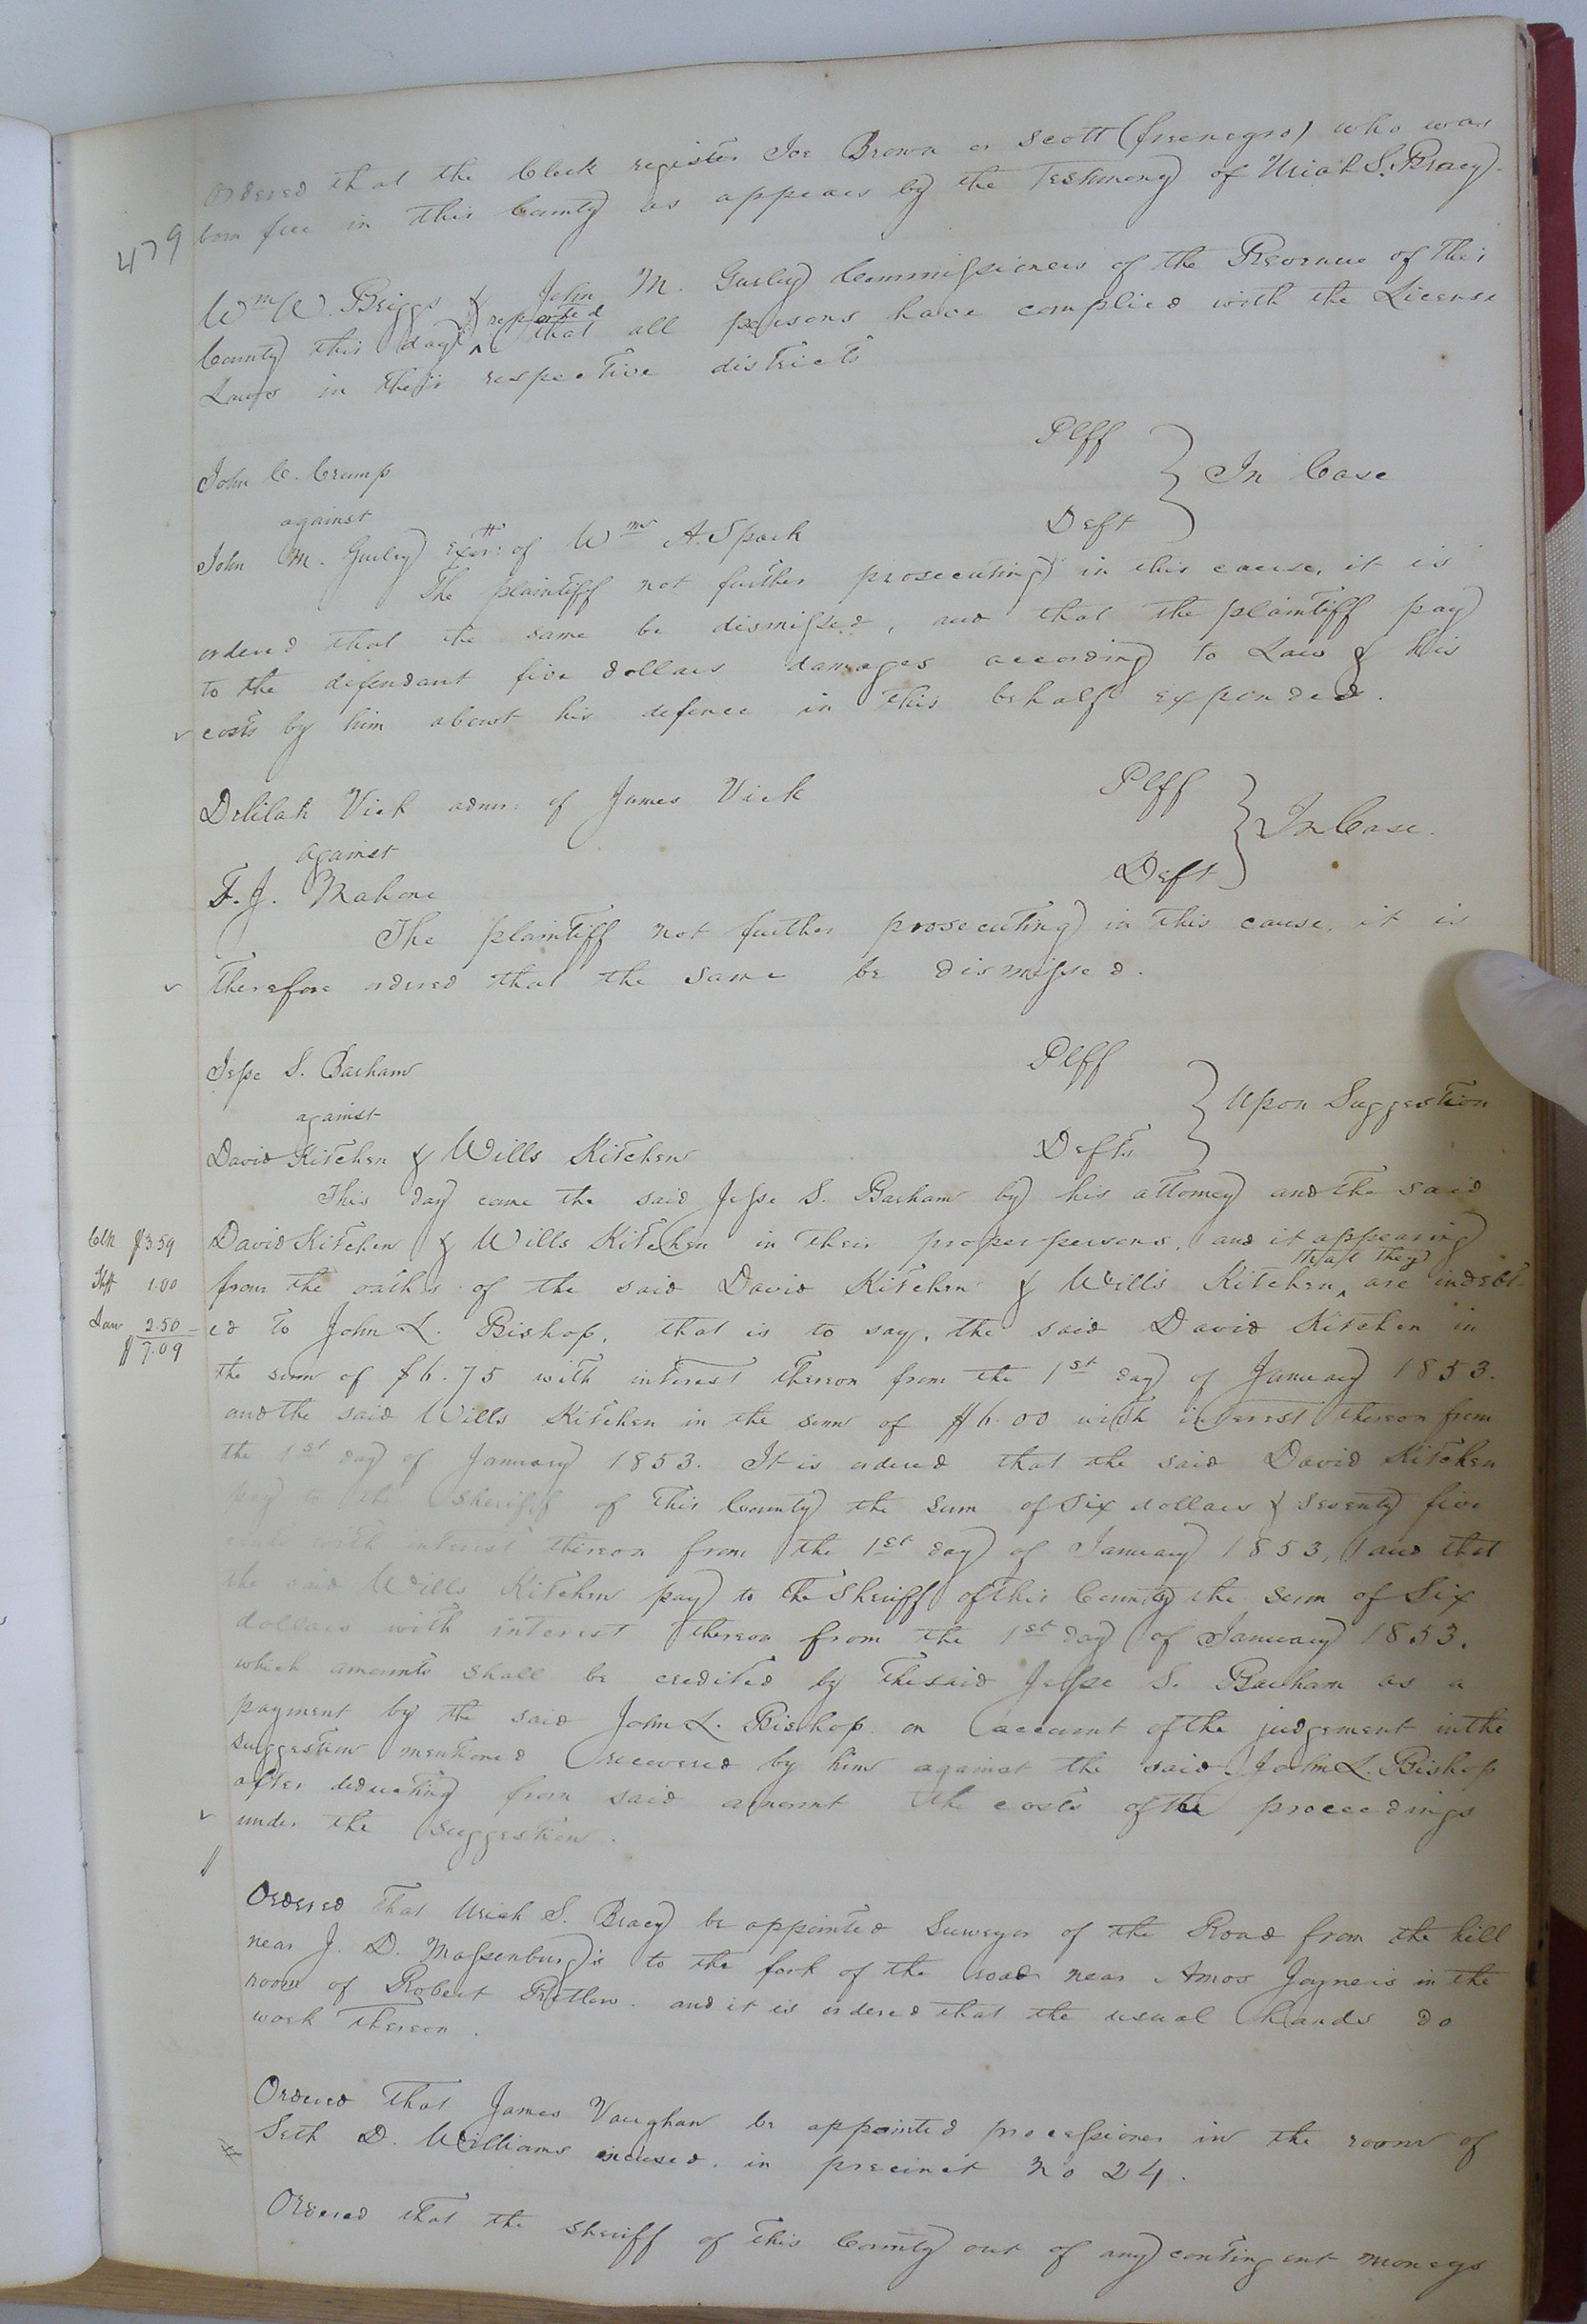 Ordered that the Clerk register Joe Brown or Scott (freenegro) who was
479
born free in this County as appears by the Testimony of Uriah S. Bracy.
Wm W. Briggs & John M. Gurley Commissioners of the Revenue of this
County this day reported that all persons have complied with the License
Laws in their respective districts
John C. Crump Plff
against } In Case
John M. Gurley Exor: of Wm A. Spark Deft
The plaintiff not further prosecuting in this cause, it is
ordered that the same be dismissed, and that the plaintiff pay
to the defendant five dollars damages according to Law & his
costs by him about his defence in this behalf expended.
Delilah Vick admr: of James Vick Plff
against } In Case.
F. J. Mahone Deft
The plaintiff not further prosecuting in this cause, it is
therefore ordered that the same be dismissed.
Jesse S. Barham Plff
against } Upon Suggestion
David Kitchen & Wills Kitchen Defts
This day came the said Jesse S. Barham by his attorney and the said
Clk $3.59
David Kitchen & Wills Kitchen in their proper persons, and it appearing
Shff 1.00
from the oaths of the said David Kitchen & Wills Kitchen, that they are indebt-
Law 2.50
$7.09
ed to John L. Bishop, that is to say, the said David Kitchen in
the sum of $6.75 with interest thereon from the 1st day of January 1853.
and the said Wills Kitchen in the sum of $6.00 with interest thereon from
the 1st day of January 1853. It is ordered that the said David Kitchen
pay to the Sheriff of this County the sum of Six dollars & seventy five
cents with interest thereon from the 1st day of January 1853, and that
the said Wills Kitchen pay to the Sheriff of this County the sum of Six
dollars with interest thereon from the 1st day of January 1853.
which amounts shall be credited by the said Jesse S. Barham as a
payment by the said John L. Bishop on account of the judgement in the
suggestion mentioned recovered by him against the said John L. Bishop
after deducting from said amount the costs of the proceedings
under the suggestion.
Ordered that Uriah S. Bracy be appointed Surveyor of the Road from the hill
near J. D. Massenburg's to the fork of the road near Amos Joyners in the
room of Robert Pretlow. and it is ordered that the usual hands do
work thereon.
Ordered that James Vaughan be appointed processioner in the room of
Seth D. Williams excused, in precinct No 24.
Ordered that the Sheriff of this County out of any contingent moneys